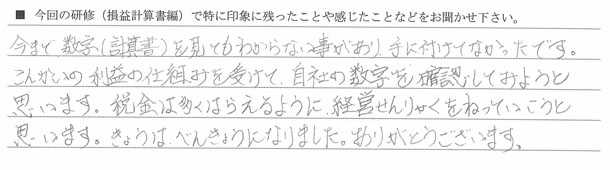 ■ 今回の研修（損益計算書編）で特に印象に残ったことや感じたことなどをお聞かせ下さい。
今まで、数字(計算書)を見てもわからない事があり、手に付けてなかったです。
こんかいの利益の仕組みを受けて、自社の数字を確認しておようと
思います。税金は多くはらえるように、経営せんりゃくをねっていこうと
思います。きょうは、べんきょうになりました。ありがとうございます。